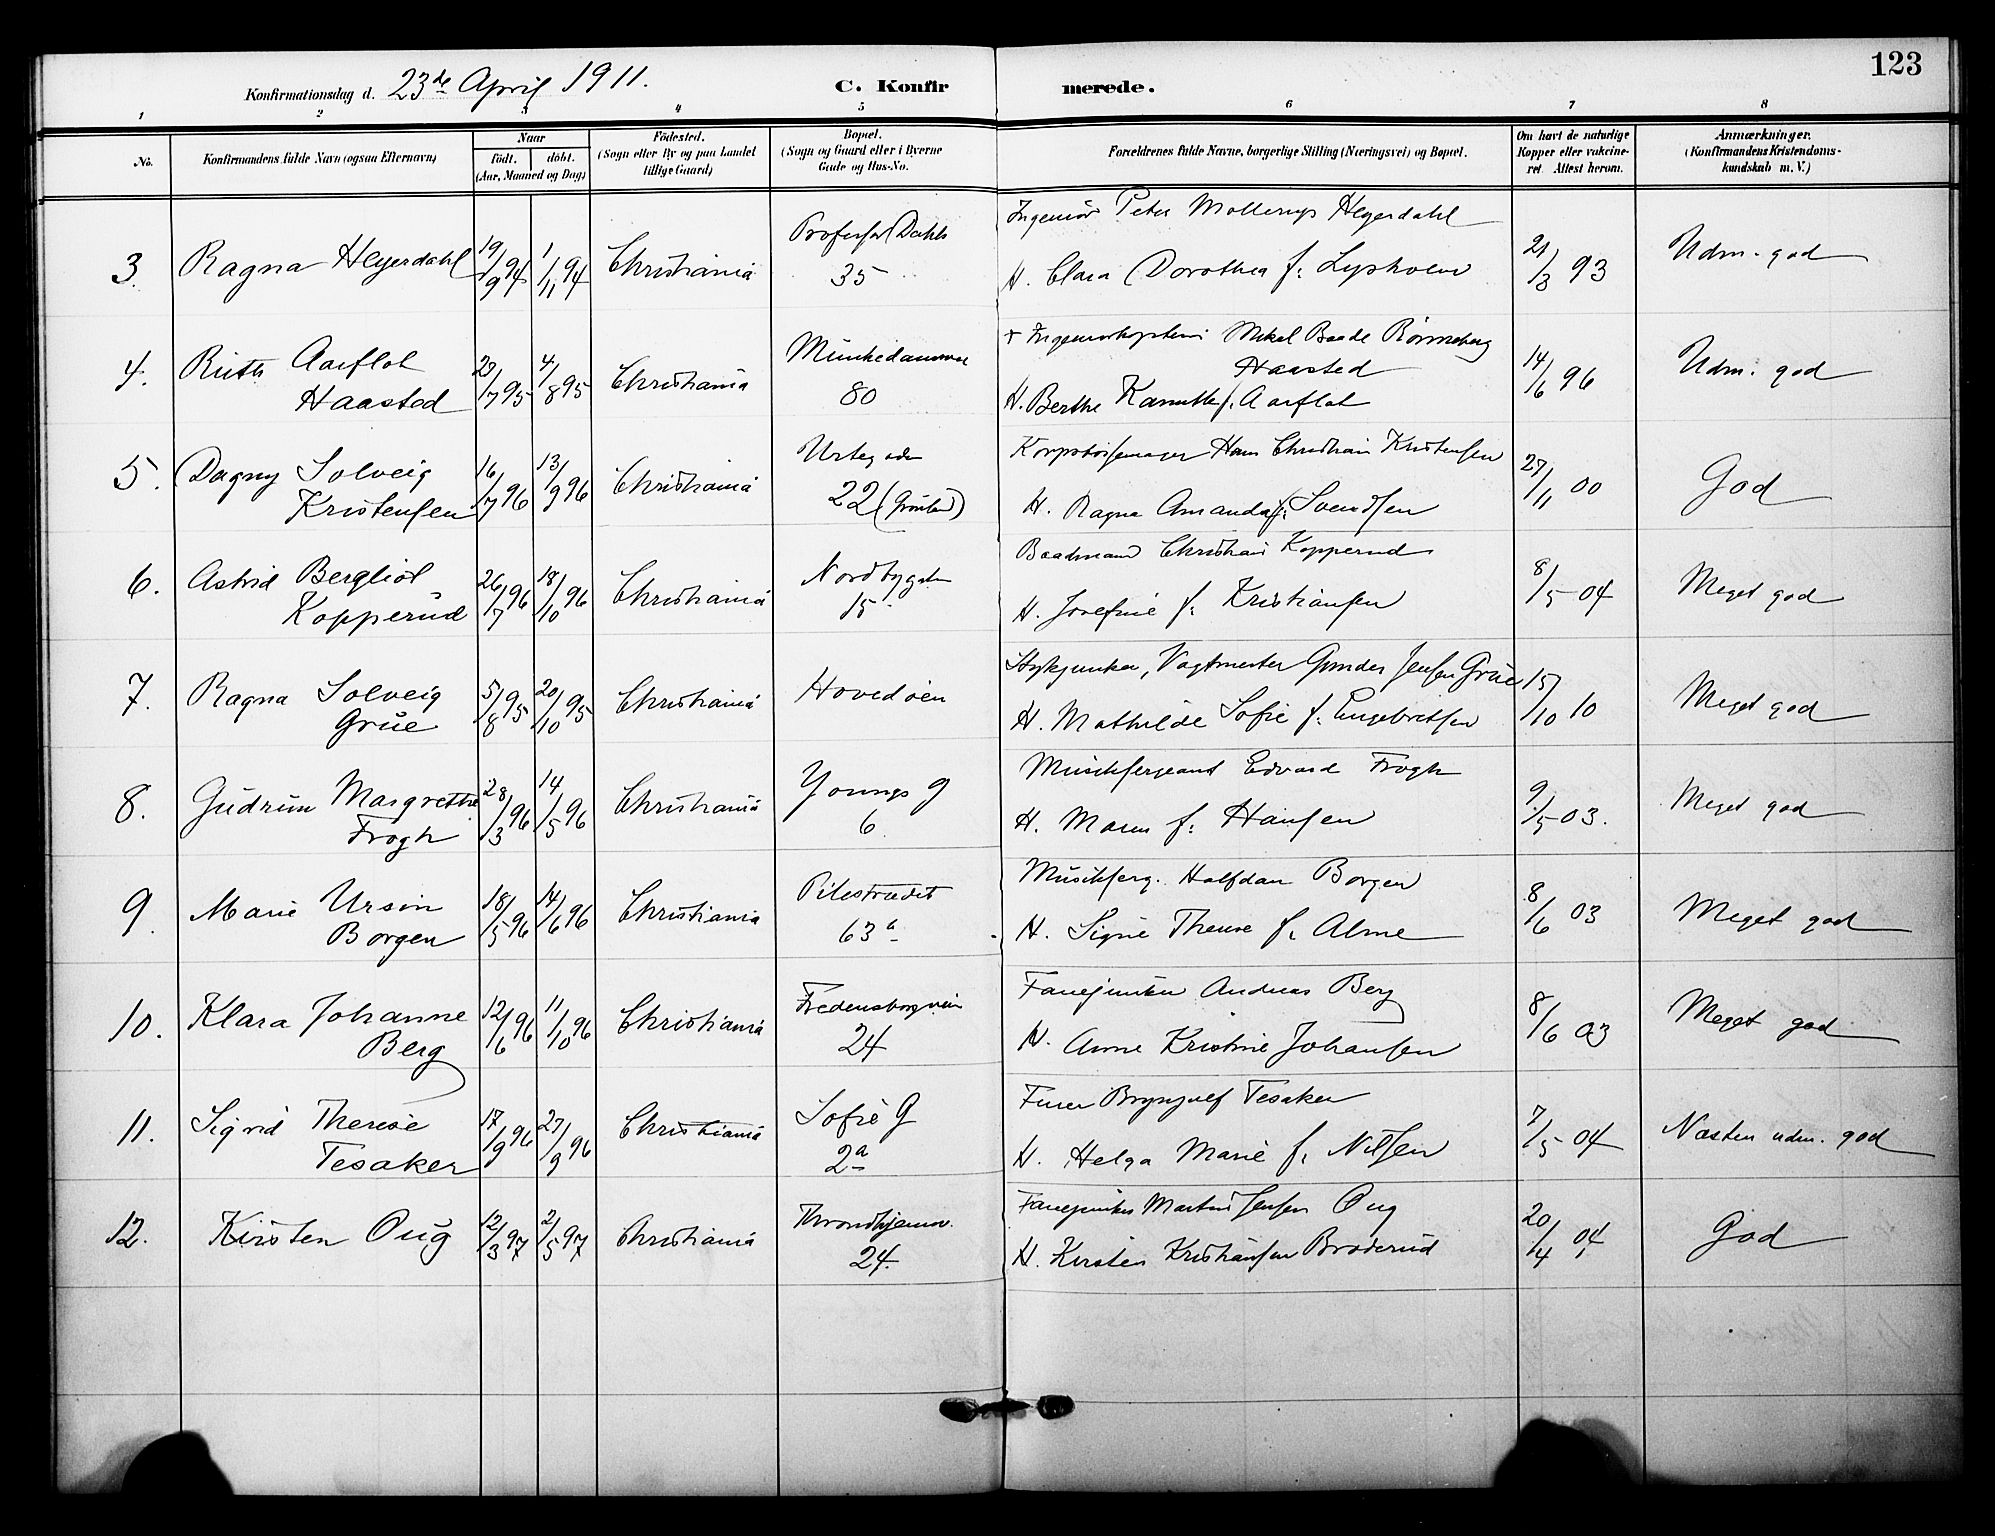 123
Konfirmationsdag d. 23de April 1911. C. Konfirmerede.
1 2 3 4 5 6 7 8
No. Konfirmandens fulde Navn (ogsaa Efternavn) Naar födt. döbt. (Aar, Maaned og Dag) Födested. (Sogn eller By og paa Landet tillige Gaard) Bopæl. (Sogn og Gaard eller i Byerne Gade og Hus-No. Forældrenes fulde Navne, borgerlige Stilling (Næringsvei) og Bopæl. Om havt de naturlige Kopper eller vakcineret. Attest herom. Anmærkninger. (Konfirmandens Kristendomskundskab m. V.)
3. Ragna Heyerdahl 19/9 94 1/11 94 Christiania Professor Dahls 35 Ingeniør Peter Heyerdahl
H. Clara Dorothea f: Lysholm 21/3 93 Udm. god
4. Ruth Aarflot Haasted 7 95 4/8 95 Christiania Munkedamsvei 80 + Mikal Baade Rönneberg Haasted
H. Berthe f. Aarflot 14/6 96 Udm. god
5. Dagny Solveig Kristensen 16/7 96 13/9 96 Christiania Urtegaden 22 (Grönland) Hans Christian Kristensen
H. Ragna Amanda f: Svendsen 27/11 00 God
6. Astrid Bergliot Kopperud 26/7 96 18/10 96 Christiania Nordbygaden 15 Baadmand Christian Kopperud
H. Josefine f: Kristiansen 8/5 04 Meget god
7. Ragna Solveig Grüe 5/8 95 20/10 95 Christiania Hovedöen Stykjunker, Vagtmester Gunder Jensen Grüe
H. Mathilde Sofie f: Engebretsen 15/10 10 Meget god
8. Gudrun Margrethe Frogh 28/3 96 14/5 96 Christiania Youngs g 6. Musiksergeant Edvard Frogh
H. Maren f: Hansen 9/5 03. Meget god
9. Marie Ursin Borgen 18/5 96 14/6 96 Christiania Pilestrædet 63 a Musikserg. Halfdan Borgen
H. Signe Therese f. Alme 8/6 03 Meget god
10. Klara Johanne Berg 12/6 96 11/10 96 Christiania Fredensborgvein 24 Fanejunker Andreas Berg
H. Anne Kristine Johansen 8/6 03 Meget god
11. Sigrid Therese Tesaker 17/9 96 27/9 96 Christiania Sofie G 2a Furer Brynjulf Tesaker
H. Helga Marie f. Nilsen 7/5 04 Næsten udm. god
12. Kirsten Oug 12/3 97 2/5 97 Christiania Throndhjemsv. 24. Fanejunker Martin Jensen Oug
H. Kirsten Kristiansen Braderud 20/4 04 God